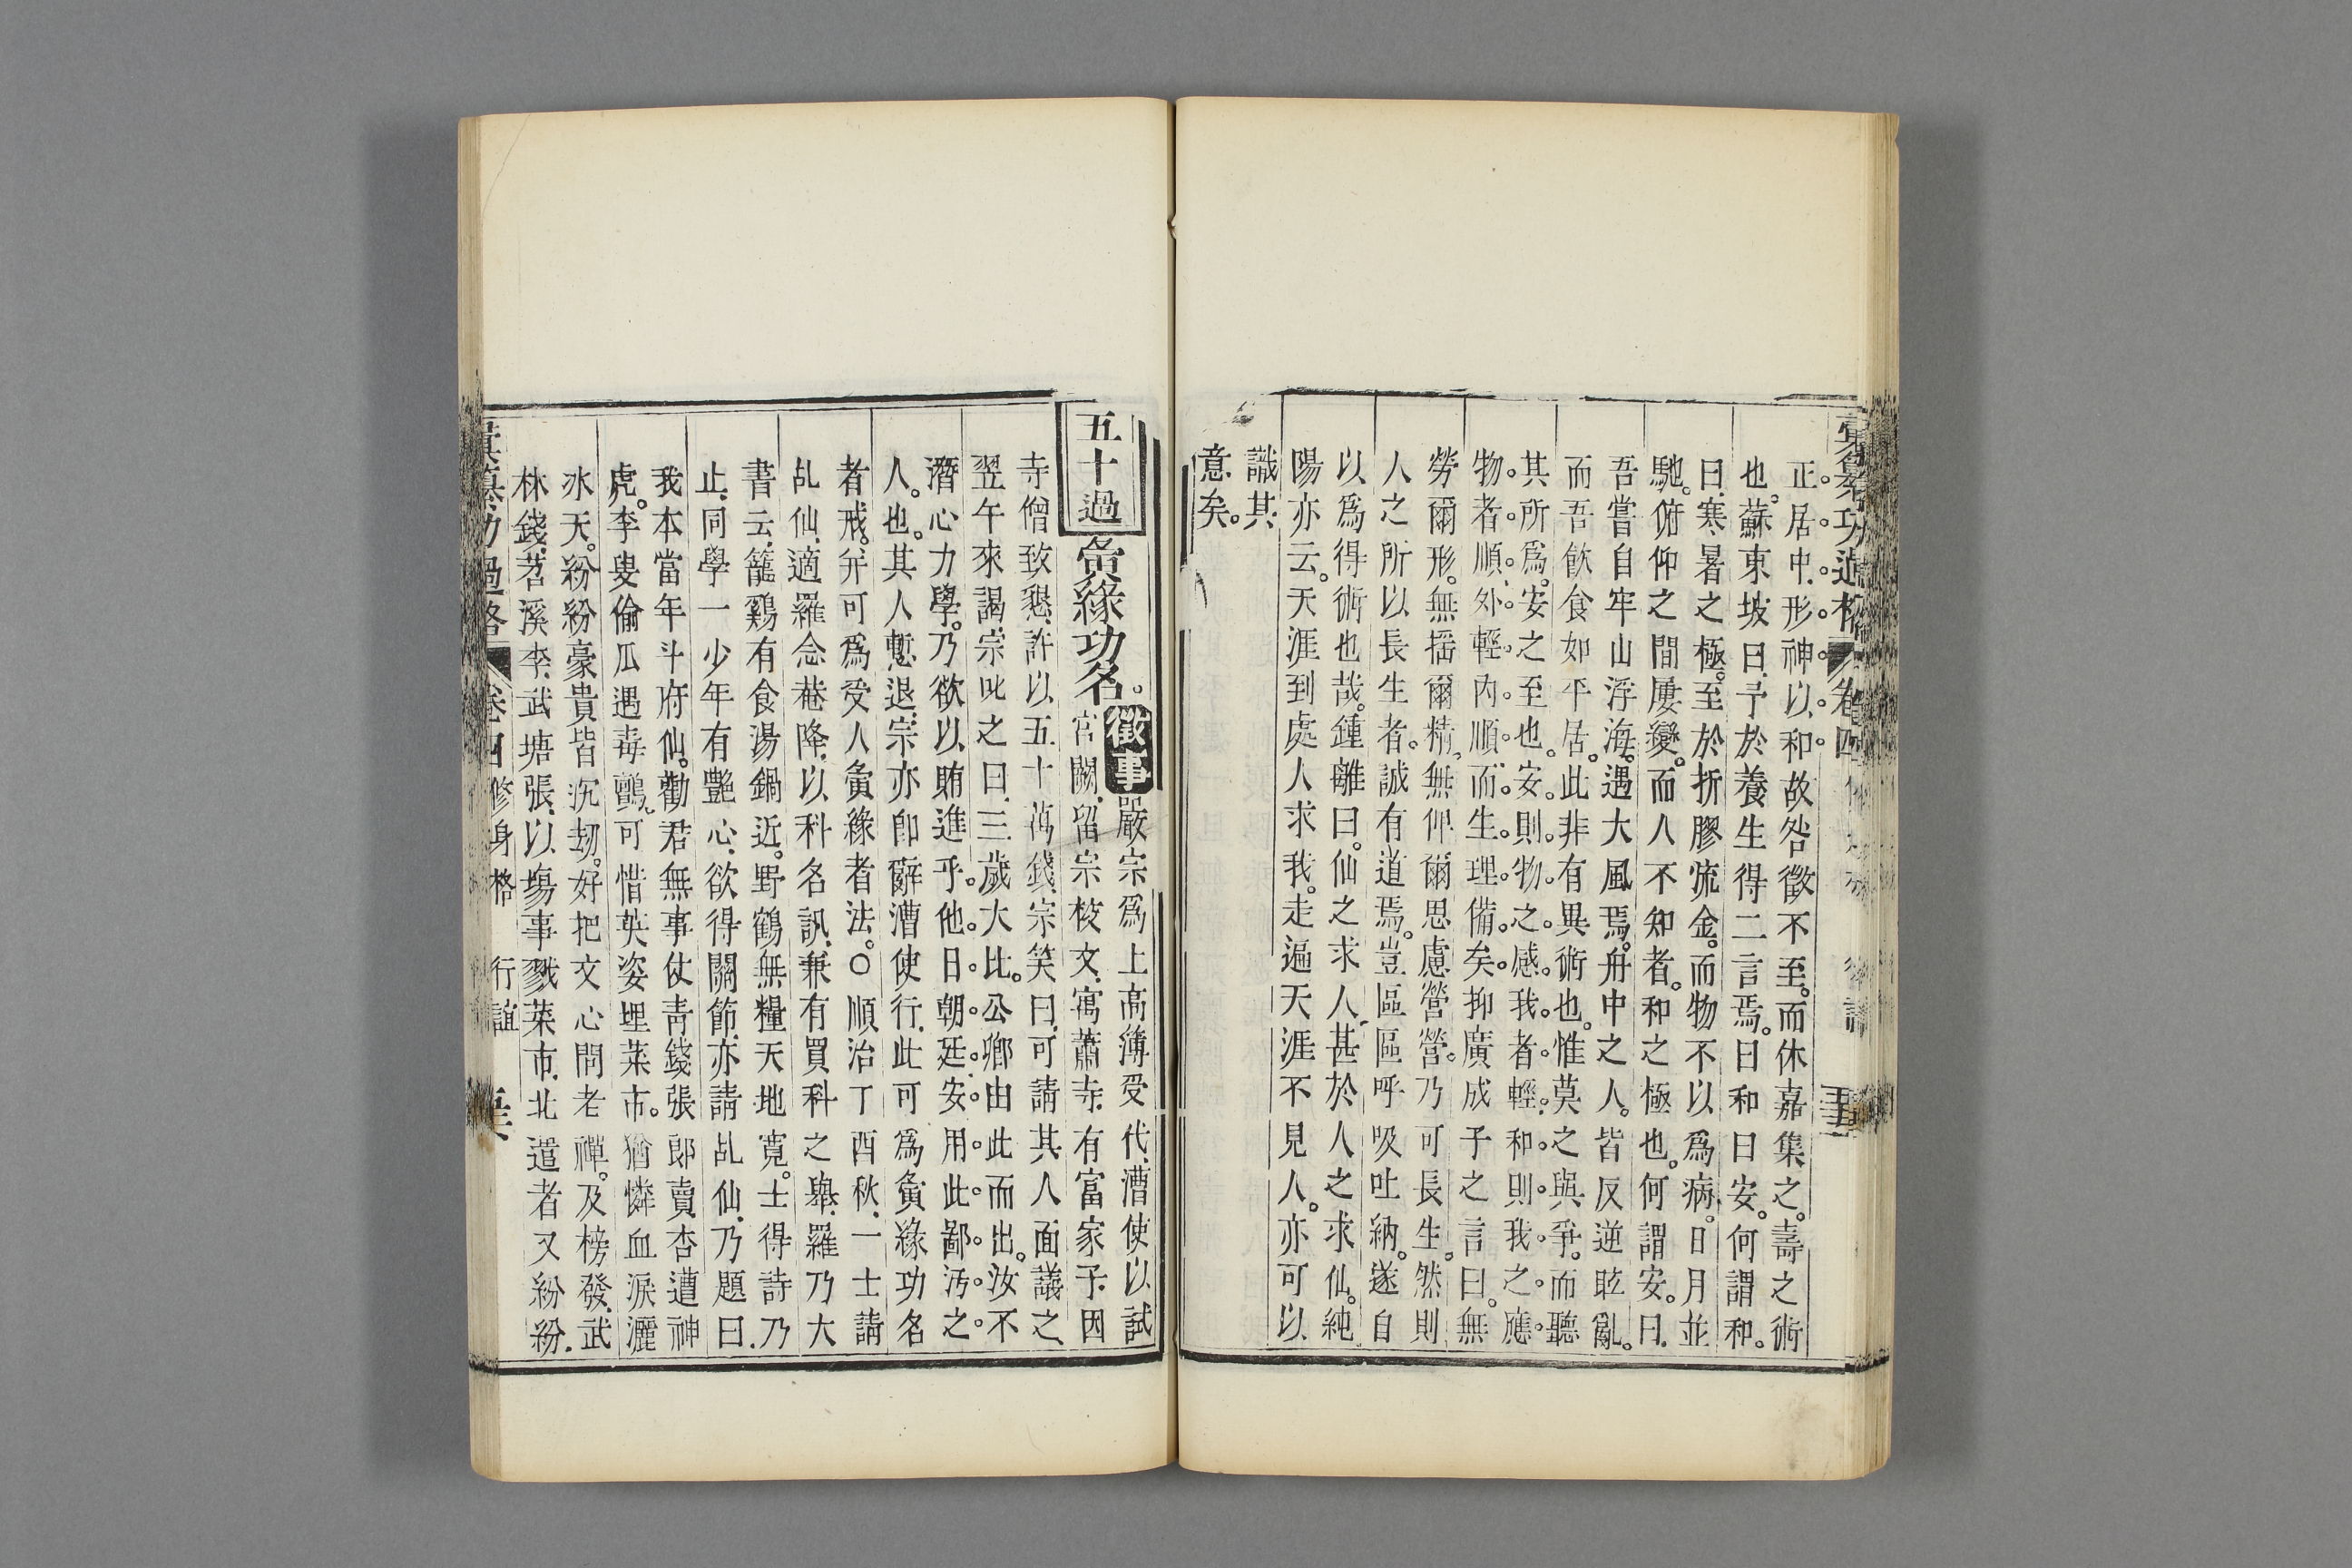 彙纂功過格 卷四
正。居中。形神以和故咎徵不至。而休嘉集之。壽之術
也。蘇東坡曰、予於養生得二言焉。曰和曰安。何謂和。
曰、寒暑之極。至於折膠流金。而物不以爲病。日月並
馳。俯仰之間屢變。而人不知者。和之極也。何謂安。曰、
吾嘗自牢山浮海。遇大風焉。舟中之人。皆反逆眩亂。
而吾飲食如平居。此非有異術也。惟莫之與爭。而聽
其所爲。安之至也。安則物之感我者輕。和則我之應
物者順。外輕內順。而生理備矣。抑廣成子之言曰。無
勞爾形。無搖爾精。無俾爾思慮營營。乃可長生。然則
人之所以長生者。誠有道焉。豈區區呼吸吐納。遂自
以爲得術也哉。鍾離曰。仙之求人、甚於人之求仙。純
陽亦云。天涯到處人求我。走遍天涯不見人。亦可以
識其
意矣。
五十過 夤緣功名。徵事 嚴宗爲上高簿受代、漕使以試
官闕、留宗校文、寓蕭寺、有富家子、因
寺僧致懇、許以五十萬錢、宗笑曰、可請其人面議之、
翌午來謁、宗叱之曰、三歲大比。公卿由此而出。汝不
潛心力學。乃欲以賄進乎。他日朝廷安用此鄙污之
人。也。其人慙退、宗亦卽辭漕使行、此可爲夤緣功名
者戒。幷可爲受人夤緣者法。○順治丁酉秋、一士請
乩仙、適羅念菴降、以科名訊、兼有買科之舉、羅乃大
書云、籠鷄有食湯鍋近。野鶴無糧天地寬。士得詩乃
止、同學一少年有豔心、欲得關節、亦請乩仙、乃題曰、
我本當年斗府仙。勸君無事仗靑錢張郞賣杏遭神
虎。李叟偷瓜遇毒鸇。可惜英姿埋菜市。猶憐血淚灑
氷天。紛紛豪貴皆沉刼。好把文心問老禪。及榜發、武
林錢、苕溪李、武塘張、以塲事戮菜市、北遣者又紛紛、
彙纂功過格 卷四 修身格 行誼